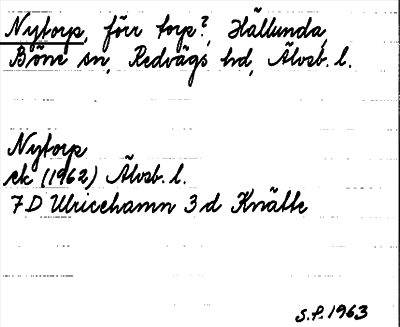 Nytorp, förr torp?, Hällunda,
Böne sn, Redvägs hd, Älvsb. l.
Nytorp
ek (1962) Älvsb. l.
7 D Ulricehamn 3 d Knätte
S.P. 1963